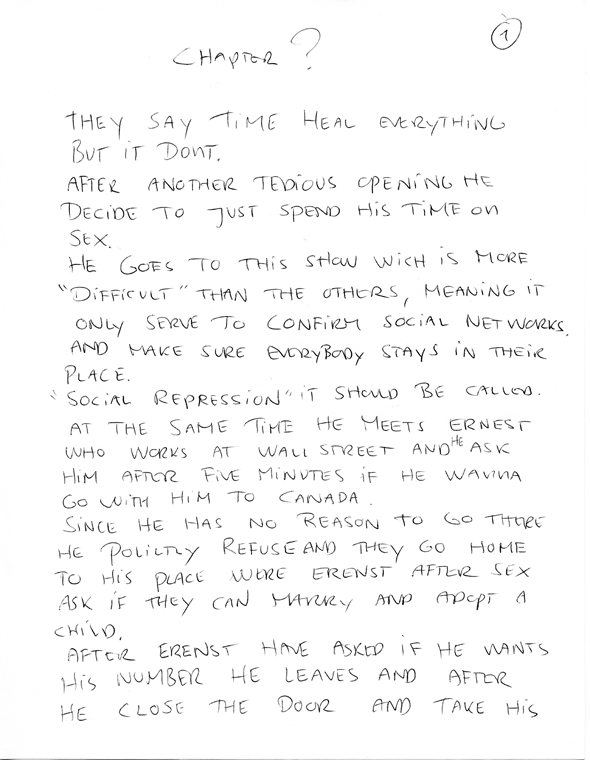 1
CHAPTER ?
THEY SAY TIME HEAL EVERYTHING
BUT IT DONT.
AFTER ANOTHER TEDIOUS OPENING HE
DECIDE TO JUST SPEND HIS TIME ON
SEX.
HE GOES TO THIS SHOW WICH IS MORE
"DIFFICULT" THAN THE OTHERS, MEANING IT
ONLY SERVE TO CONFIRM SOCIAL NETWORKS.
AND MAKE SURE EVERYBODY STAYS IN THEIR
PLACE.
"SOCIAL REPRESSION" IT SHOULD BE CALLED.
AT THE SAME TIME HE MEETS ERNEST
WHO WORKS AT WALL STREET AND HE ASK
HIM AFTER FIVE MINUTES IF HE WANNA
GO WITH HIM TO CANADA.
SINCE HE HAS NO REASON TO GO THERE
HE POLITLY REFUSE AND THEY GO HOME
TO HIS PLACE WERE ERENST AFTER SEX
ASK IF THEY CAN MARRY AND ADOPT A
CHILD.
AFTER ERENST HAVE ASKED IF HE WANTS
HIS NUMBER HE LEAVES AND AFTER
HE CLOSE THE DOOR AND TAKE HIS